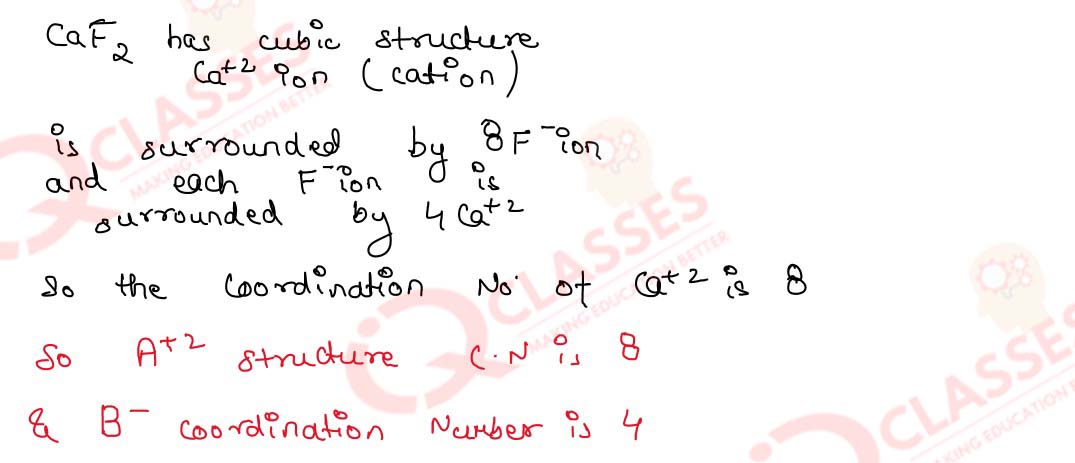 CaF₂ has cubic structure
Ca⁺² ion (cation)
is surrounded by 8F⁻ion
and each F⁻ion is
surrounded by 4Ca⁺²
So the Coordination No. of Ca⁺² is 8
So A⁺² structure C.N is 8
& B⁻ coordination Number is 4
CLASSES
MAKING EDUCATION BETTER
CLASSES
MAKING EDUCATION BETTER
CLASSES
MAKING EDUCATION